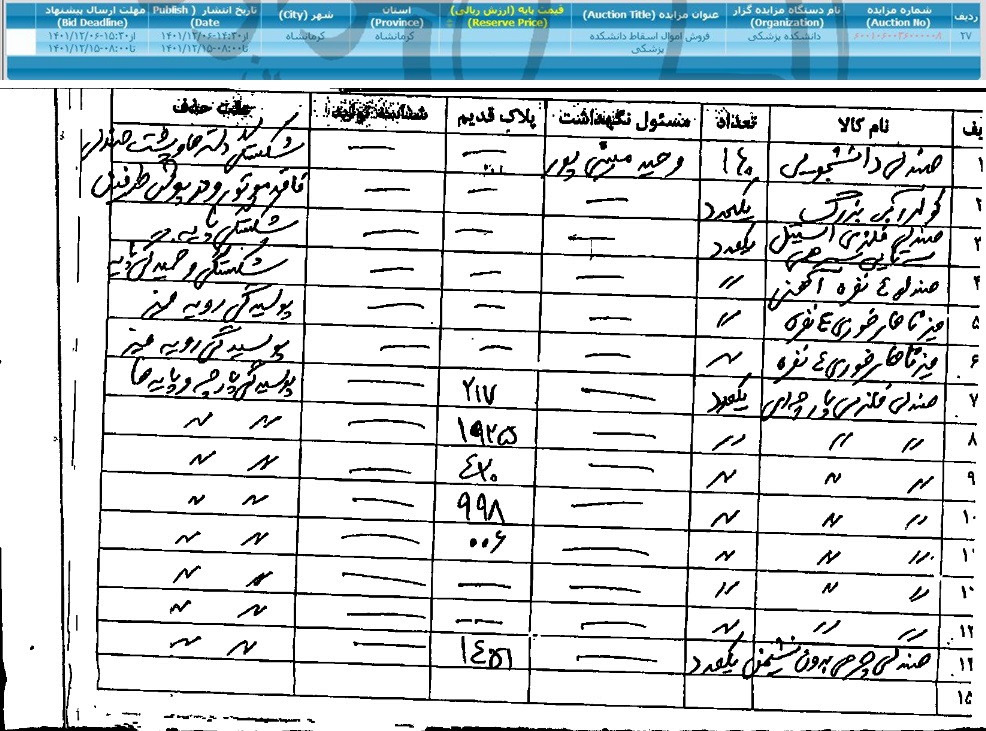 ردیف شماره مزایده (Auction No) نام دستگاه مزایده گزار (Organization) عنوان مزایده (Auction Title) قیمت پایه (ارزش ریالی) (Reserve Price) استان (Province) شهر (City) تاریخ انتشار (Publish Date) مهلت ارسال پیشنهاد (Bid Deadline)
۲۷ دانشکده پزشکی فروش اموال اسقاط دانشکده پزشکی کرمانشاه کرمانشاه از ۱۴:۳۰-۱۴۰۱/۱۲/۰۶ تا ۰۸:۰۰-۱۴۰۱/۱۲/۱۵ از ۱۵:۳۰-۱۴۰۱/۱۲/۰۶ تا ۰۸:۰۰-۱۴۰۱/۱۲/۱۵
یف نام کالا تعداد مسئول نگهداشت پلاک قدیم علت حذف
۱ صندلی دانشجویی ۱۴۰ وحید مبینی پور — — شکستگی دسته ها و پشت صندلی
۲ کولر آبی بزرگ یکعدد — — — فاقد موتور و
۳ صندلی فلزی استیل یکعدد — — — شکستگی پایه
۴ صندلی ٤ نفره آهنی // — — — شکستگی و خمیدگی پایه
۵ میز ناهارخوری ٤ نفره // — — — پوسیدگی رویه میز
۶ میز ناهارخوری ٤ نفره // — — — پوسیدگی رویه میز
۷ صندلی فلزی پارچه ای یکعدد — ۲۱۷ — پوسیدگی پارچه و پایه ها
۸ // // // // — ۱۹۲۵ — // //
۹ // // // // — ٤۳۰ — // //
۱۰ // // // // — ۹۹۸ — // //
۱۱ // // // // — ۰۰۶ — // //
// // // // — — — // //
// // // // — — — // //
صندلی چرمی بدون نشیمن یکعدد — ۱٤۵۱ — // //
۱۵